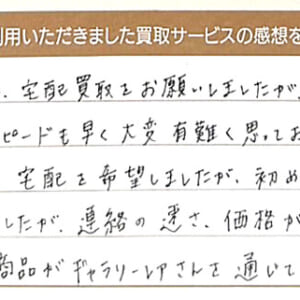 用いただきました買取サービスの感想を
、宅配買取をお願いしましたが
ピードも早く大変有難く思ってお
宅配を希望しましたが、初め
したが、連絡の速さ、価格が
商品がギャラリーレアさんを通じて